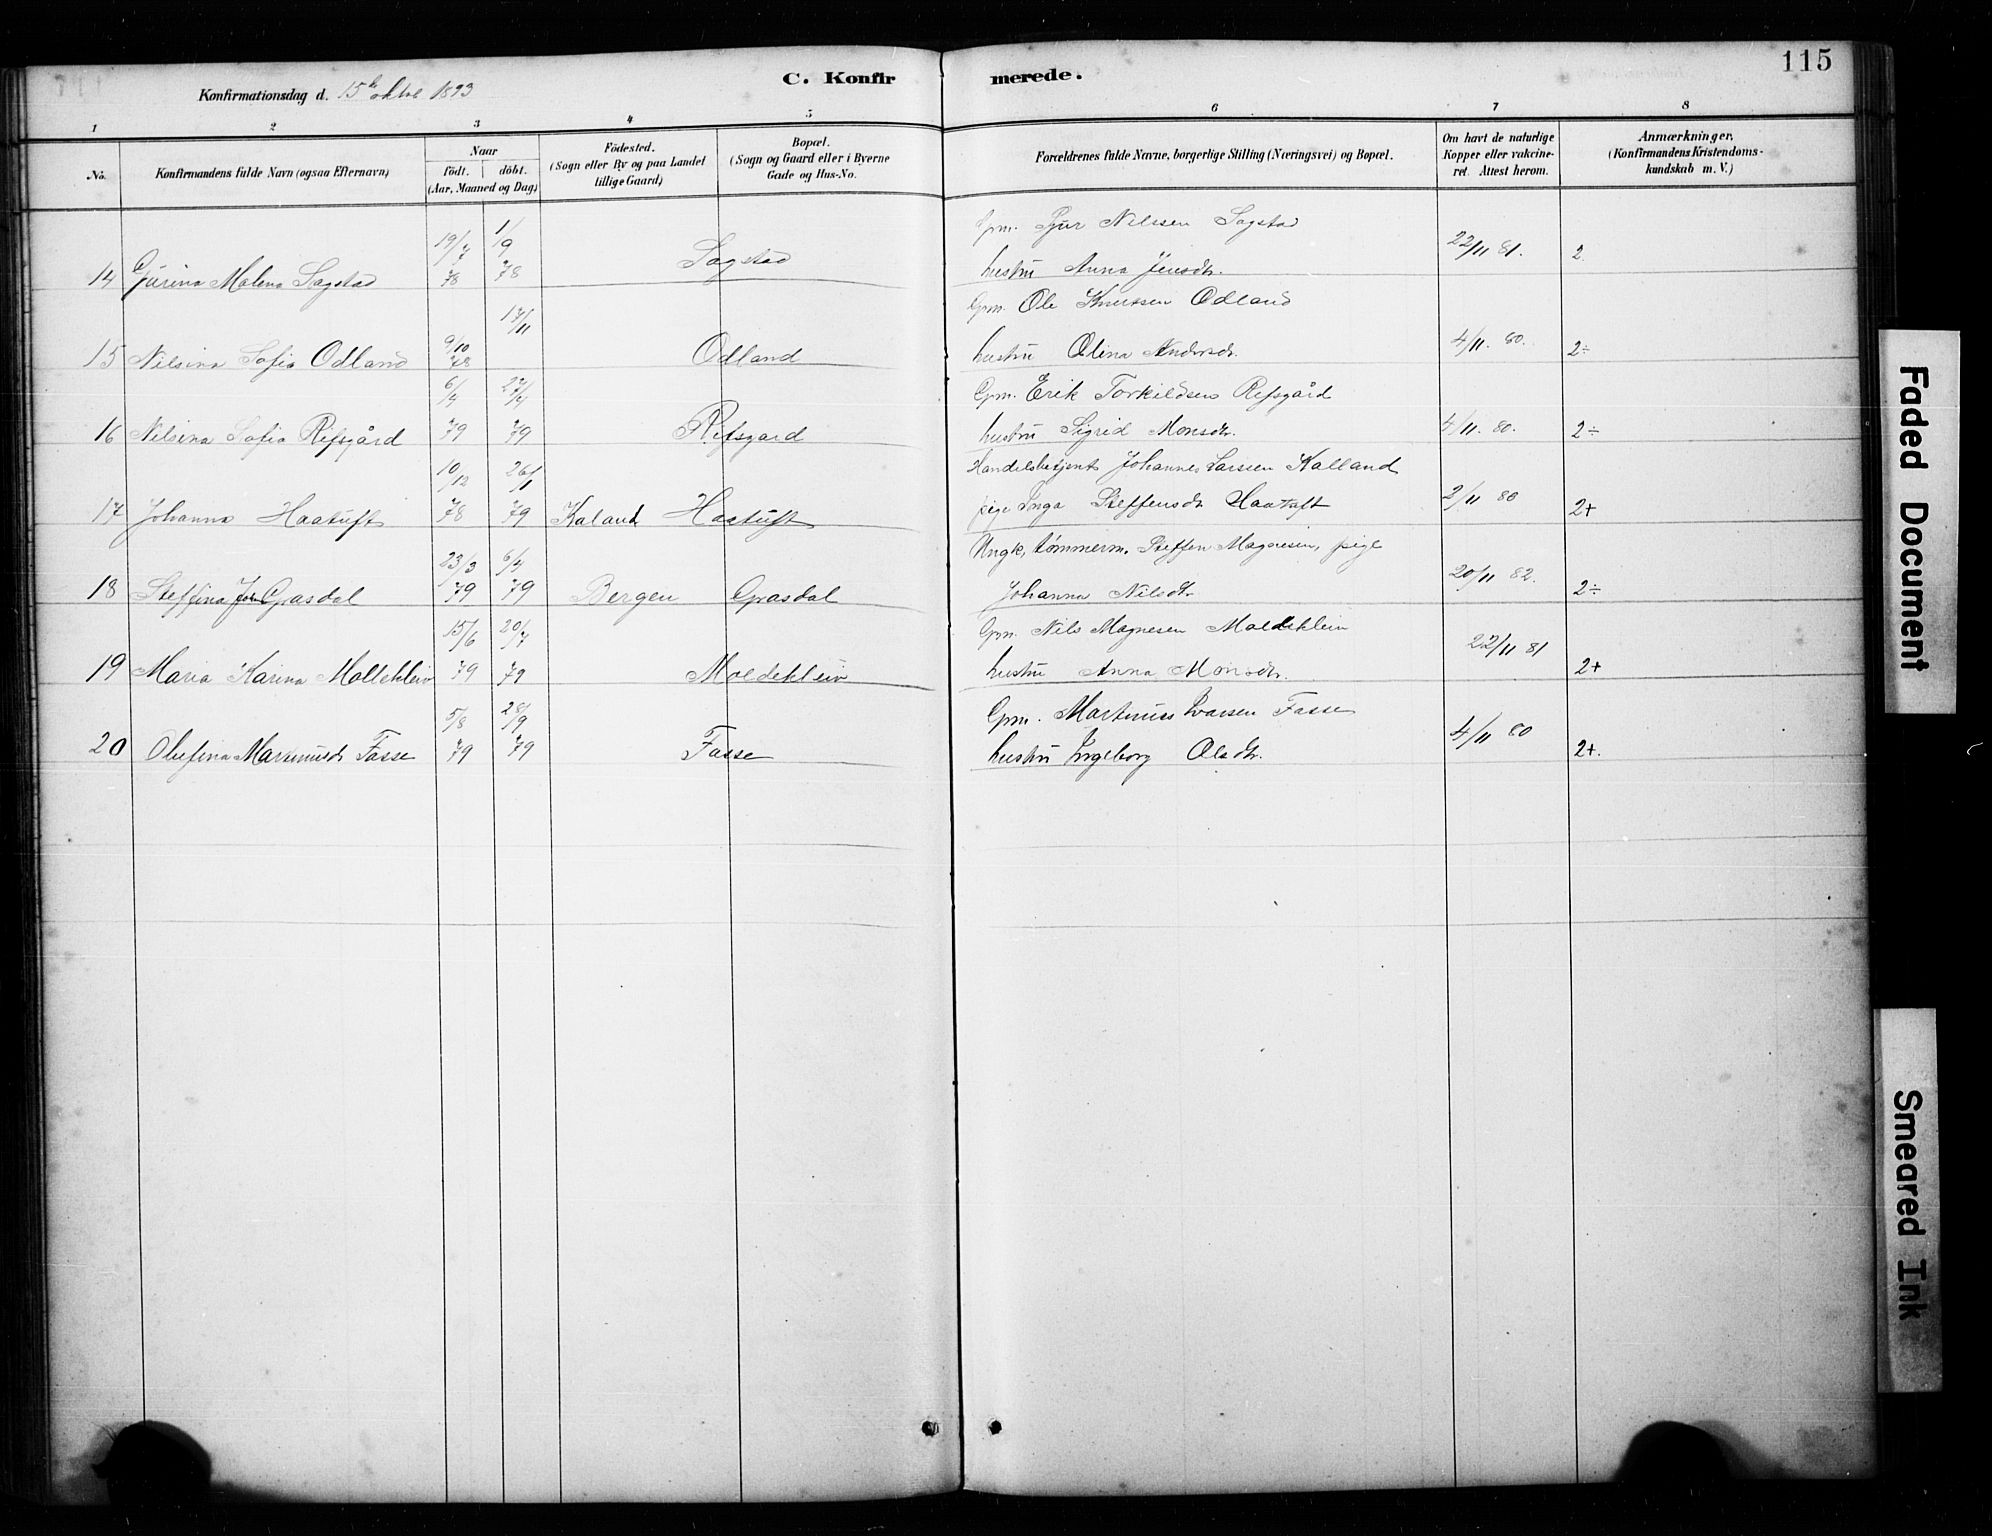 115
C. Konfirmerede.
Konfirmationsdag d. 15de oktbr 1893
1 2 3 4 5 6 7 8
No.
Konfirmandens fulde Navn (ogsaa Efternavn)
Naar
födt. döbt.
(Aar, Maaned og Dag)
Födested.
(Sogn eller By og paa Landet
tillige Gaard)
Bopæl.
(Sogn og Gaard eller i Byerne
Gade og Hus-No.
Forældrenes fulde Navne, borgerlige Stilling (Næringsvei) og Bopæl.
Om havt de naturlige
Kopper eller vakcine-
ret. Attest herom.
Anmærkninger.
(Konfirmandens Kristendoms-
kundskab m. V.)
19/7 1/9 Gpm. Sjur Nilssen Sagstad
14 Gurina Malena Sagstad 78 78 Sagstad hustru Anna Jensdtr. 22/11 81. 2
17/11 Gpm. Ole Knutsen Odland
15 Nilsina Sofia Odland 9/10 78 Odland hustru Olina Andersdr. 4/11. 80. 2÷
6/4 27/4 Gpm. Erik Torkildsen Refsgård
16 Nilsina Sofia Refsgård 79 79 Refsgard hustru Sigrid Monsdtr. 4/11. 80. 2÷
10/12 26/1 Handelsbetjent Johannes Larsen Kalland
17 Johanna Haatuft 78 79 Kaland Haatuft pige Inga Steffensdtr Haatuft 2/11 80 2+
23/3 6/4 Ungk, tømmerm. Steffen Magnesen, pige
18 Steffina Joh Grasdal 79 79 Bergen Grasdal Johanna Nilsdtr 20/11 82. 2÷
15/6 20/7 Gpm. Nils Magnesen Moldekleiv
19 Maria Karina Molleklev 79 79 Moldekleiv hustru Anna Monsdtr. 22/11 81 2+
5/8 28/9 Gpm. Martinus Ivarsen Fosse
20 Olufina Martinusdtr Fosse 79 79 Fosse hustru Ingeborg Olsdtr. 4/11 80 2+.
Faded Document
Smeared Ink